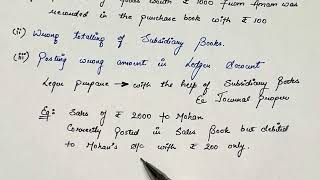 goods worth ₹ 1000 from Amam was
recorded in the purchase book with ₹ 100
(ii) Wrong totaling of Subsidiary Books.
(iii) Posting wrong amount in Ledger Account
Leger prepare → with the help of Subsidiary Books
Journal proper
Eg: Sales of ₹ 2000 to Mohan
Correctly posted in Sales Book but debited
to Mohan's a/c with ₹ 200 only.